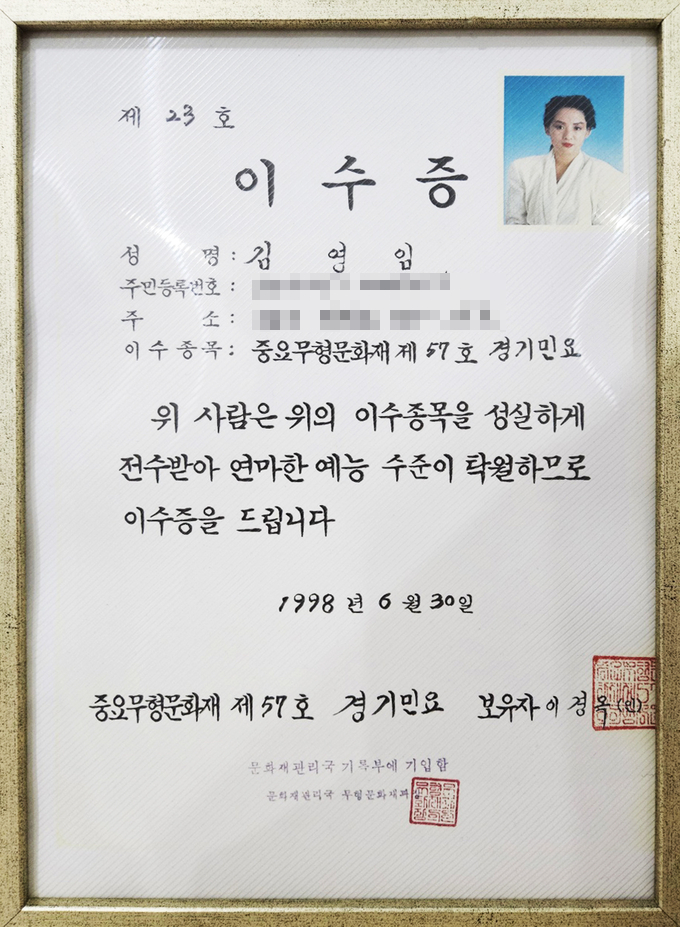 제 23 호
이 수 증
성 명 : 김 영 임
주민등록번호 :
주 소 :
이수종목 : 중요무형문화재 제 57호 경기민요
위 사람은 위의 이수종목을 성실하게
전수받아 연마한 예능 수준이 탁월하므로
이수증을 드립니다
1998 년 6 월 30일
중요무형문화재 제 57호 경기민요 보유자 이 경 옥 (인)
문화재관리국 기록부에 기입함
문화재관리국 무형문화재과